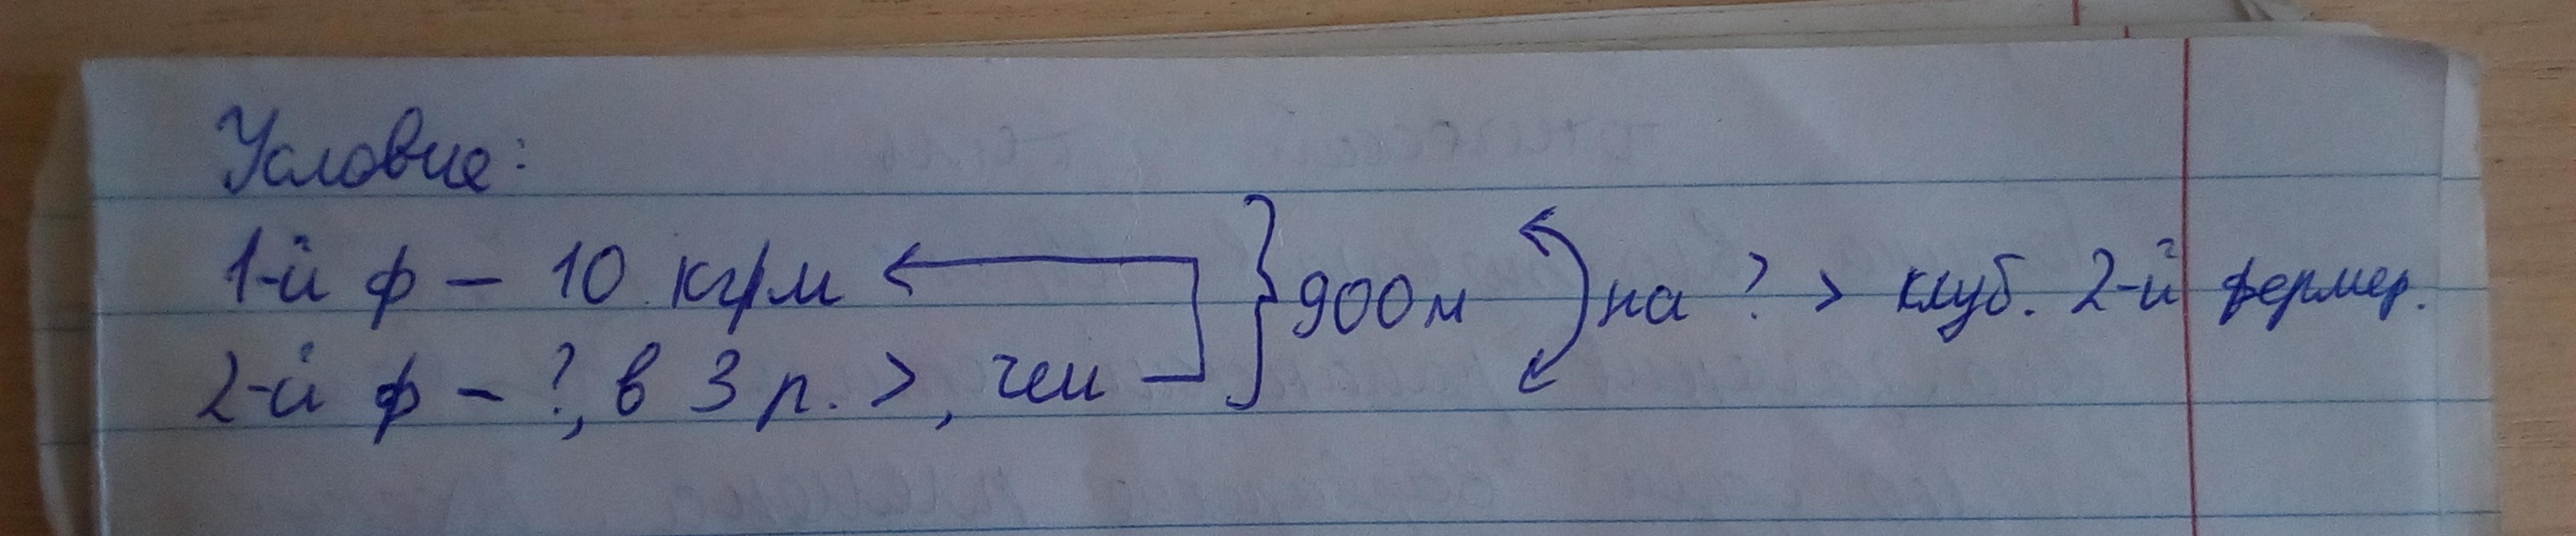 Условие:
1-й ф – 10 кг/м } 900м на ? > клуб. 2-й фермер.
2-й ф – ?, в 3 р. >, чем